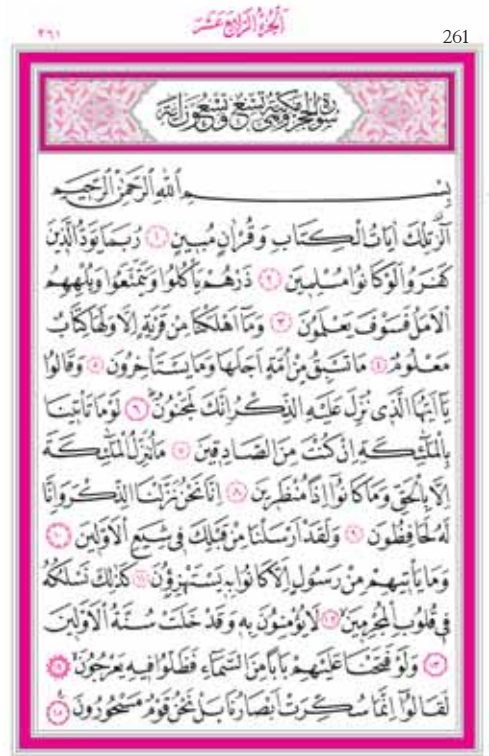 ٢٦١ اَلْجُزْءُ الرَّابِعُ عَشَرَ 261
سُورَةُ الْحِجْرِ مَكِّيَّةٌ وَهِيَ تِسْعٌ وَتِسْعُونَ اٰيَةً
بِسْــــــــمِ اللّٰهِ الرَّحْمٰنِ الرَّحٖيمِ
الٓرٰ تِلْكَ اٰيَاتُ الْكِتَابِ وَقُرْاٰنٍ مُبٖينٍ ﴿١﴾ رُبَمَا يَوَدُّ الَّذٖينَ
كَفَرُوا لَوْ كَانُوا مُسْلِمٖينَ ﴿٢﴾ ذَرْهُمْ يَأْكُلُوا وَيَتَمَتَّعُوا وَيُلْهِهِمُ
الْاَمَلُ فَسَوْفَ يَعْلَمُونَ ﴿٣﴾ وَمَٓا اَهْلَكْنَا مِنْ قَرْيَةٍ اِلَّا وَلَهَا كِتَابٌ
مَعْلُومٌ ﴿٤﴾ مَا تَسْبِقُ مِنْ اُمَّةٍ اَجَلَهَا وَمَا يَسْتَأْخِرُونَ ﴿٥﴾ وَقَالُوا
يَٓا اَيُّهَا الَّذٖى نُزِّلَ عَلَيْهِ الذِّكْرُ اِنَّكَ لَمَجْنُونٌ ﴿٦﴾ لَوْ مَا تَأْتٖينَا
بِالْمَلٰٓئِكَةِ اِنْ كُنْتَ مِنَ الصَّادِقٖينَ ﴿٧﴾ مَا نُنَزِّلُ الْمَلٰٓئِكَةَ
اِلَّا بِالْحَقِّ وَمَا كَانُٓوا اِذًا مُنْظَرٖينَ ﴿٨﴾ اِنَّا نَحْنُ نَزَّلْنَا الذِّكْرَ وَاِنَّا
لَهُ لَحَافِظُونَ ﴿٩﴾ وَلَقَدْ اَرْسَلْنَا مِنْ قَبْلِكَ فٖى شِيَعِ الْاَوَّلٖينَ ﴿١٠﴾
وَمَا يَأْتٖيهِمْ مِنْ رَسُولٍ اِلَّا كَانُوا بِهٖ يَسْتَهْزِؤُنَ ﴿١١﴾ كَذٰلِكَ نَسْلُكُهُ
فٖى قُلُوبِ الْمُجْرِمٖينَ ﴿١٢﴾ لَا يُؤْمِنُونَ بِهٖ وَقَدْ خَلَتْ سُنَّةُ الْاَوَّلٖينَ
﴿١٣﴾ وَلَوْ فَتَحْنَا عَلَيْهِمْ بَابًا مِنَ السَّمَٓاءِ فَظَلُّوا فٖيهِ يَعْرُجُونَ ﴿١٤﴾
لَقَالُٓوا اِنَّمَا سُكِّرَتْ اَبْصَارُنَا بَلْ نَحْنُ قَوْمٌ مَسْحُورُونَ ﴿١٥﴾